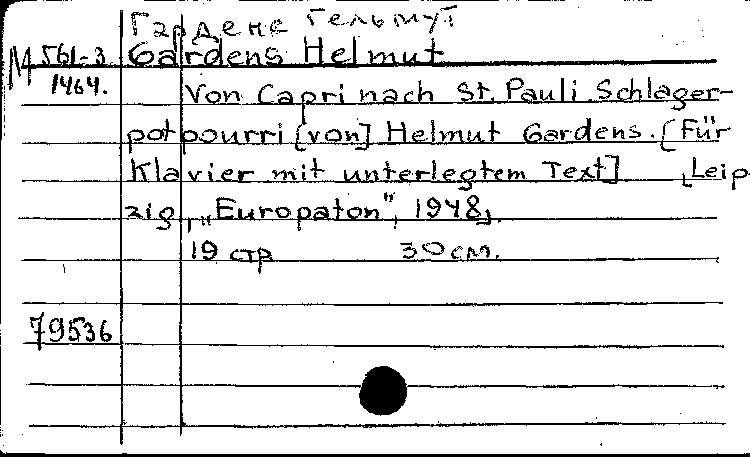 Гарденс Гельмут
М 561-3 Gardens Helmut
1464.
Von Capri nach St. Pauli Schlager-
potpourri [von] Helmut Gardens. [Für
Klavier mit unterlegtem Text] [Leip
zig, „Europaton", 1948].
19 стр 30 см.
79536